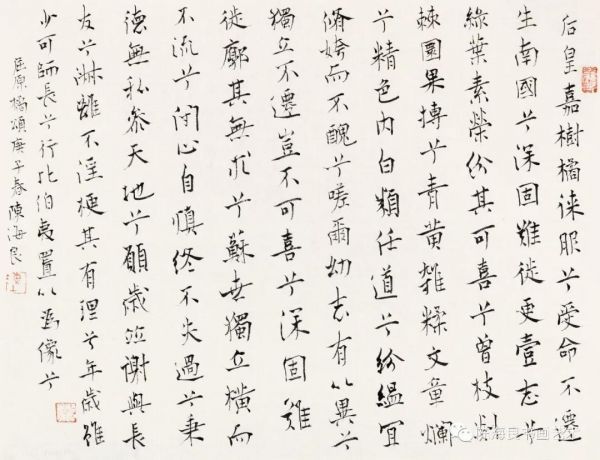 后皇嘉樹橘徠服兮受命不遷
生南國兮深固難徙更壹志兮
綠葉素榮紛其可喜兮曾枝剡
棘圓果摶兮青黃雜糅文章爛
兮精色內白類任道兮紛緼宜
脩姱而不醜兮嗟爾幼志有以異兮
獨立不遷豈不可喜兮深固難
徙廓其無求兮蘇世獨立橫而
不流兮閉心自慎終不失過兮秉
德無私參天地兮願歲竝謝與長
友兮淋離不淫梗其有理兮年歲雖
少可師長兮行比伯夷置以為像兮
屈原橘頌庚子春陳海良
陈海良书画艺术